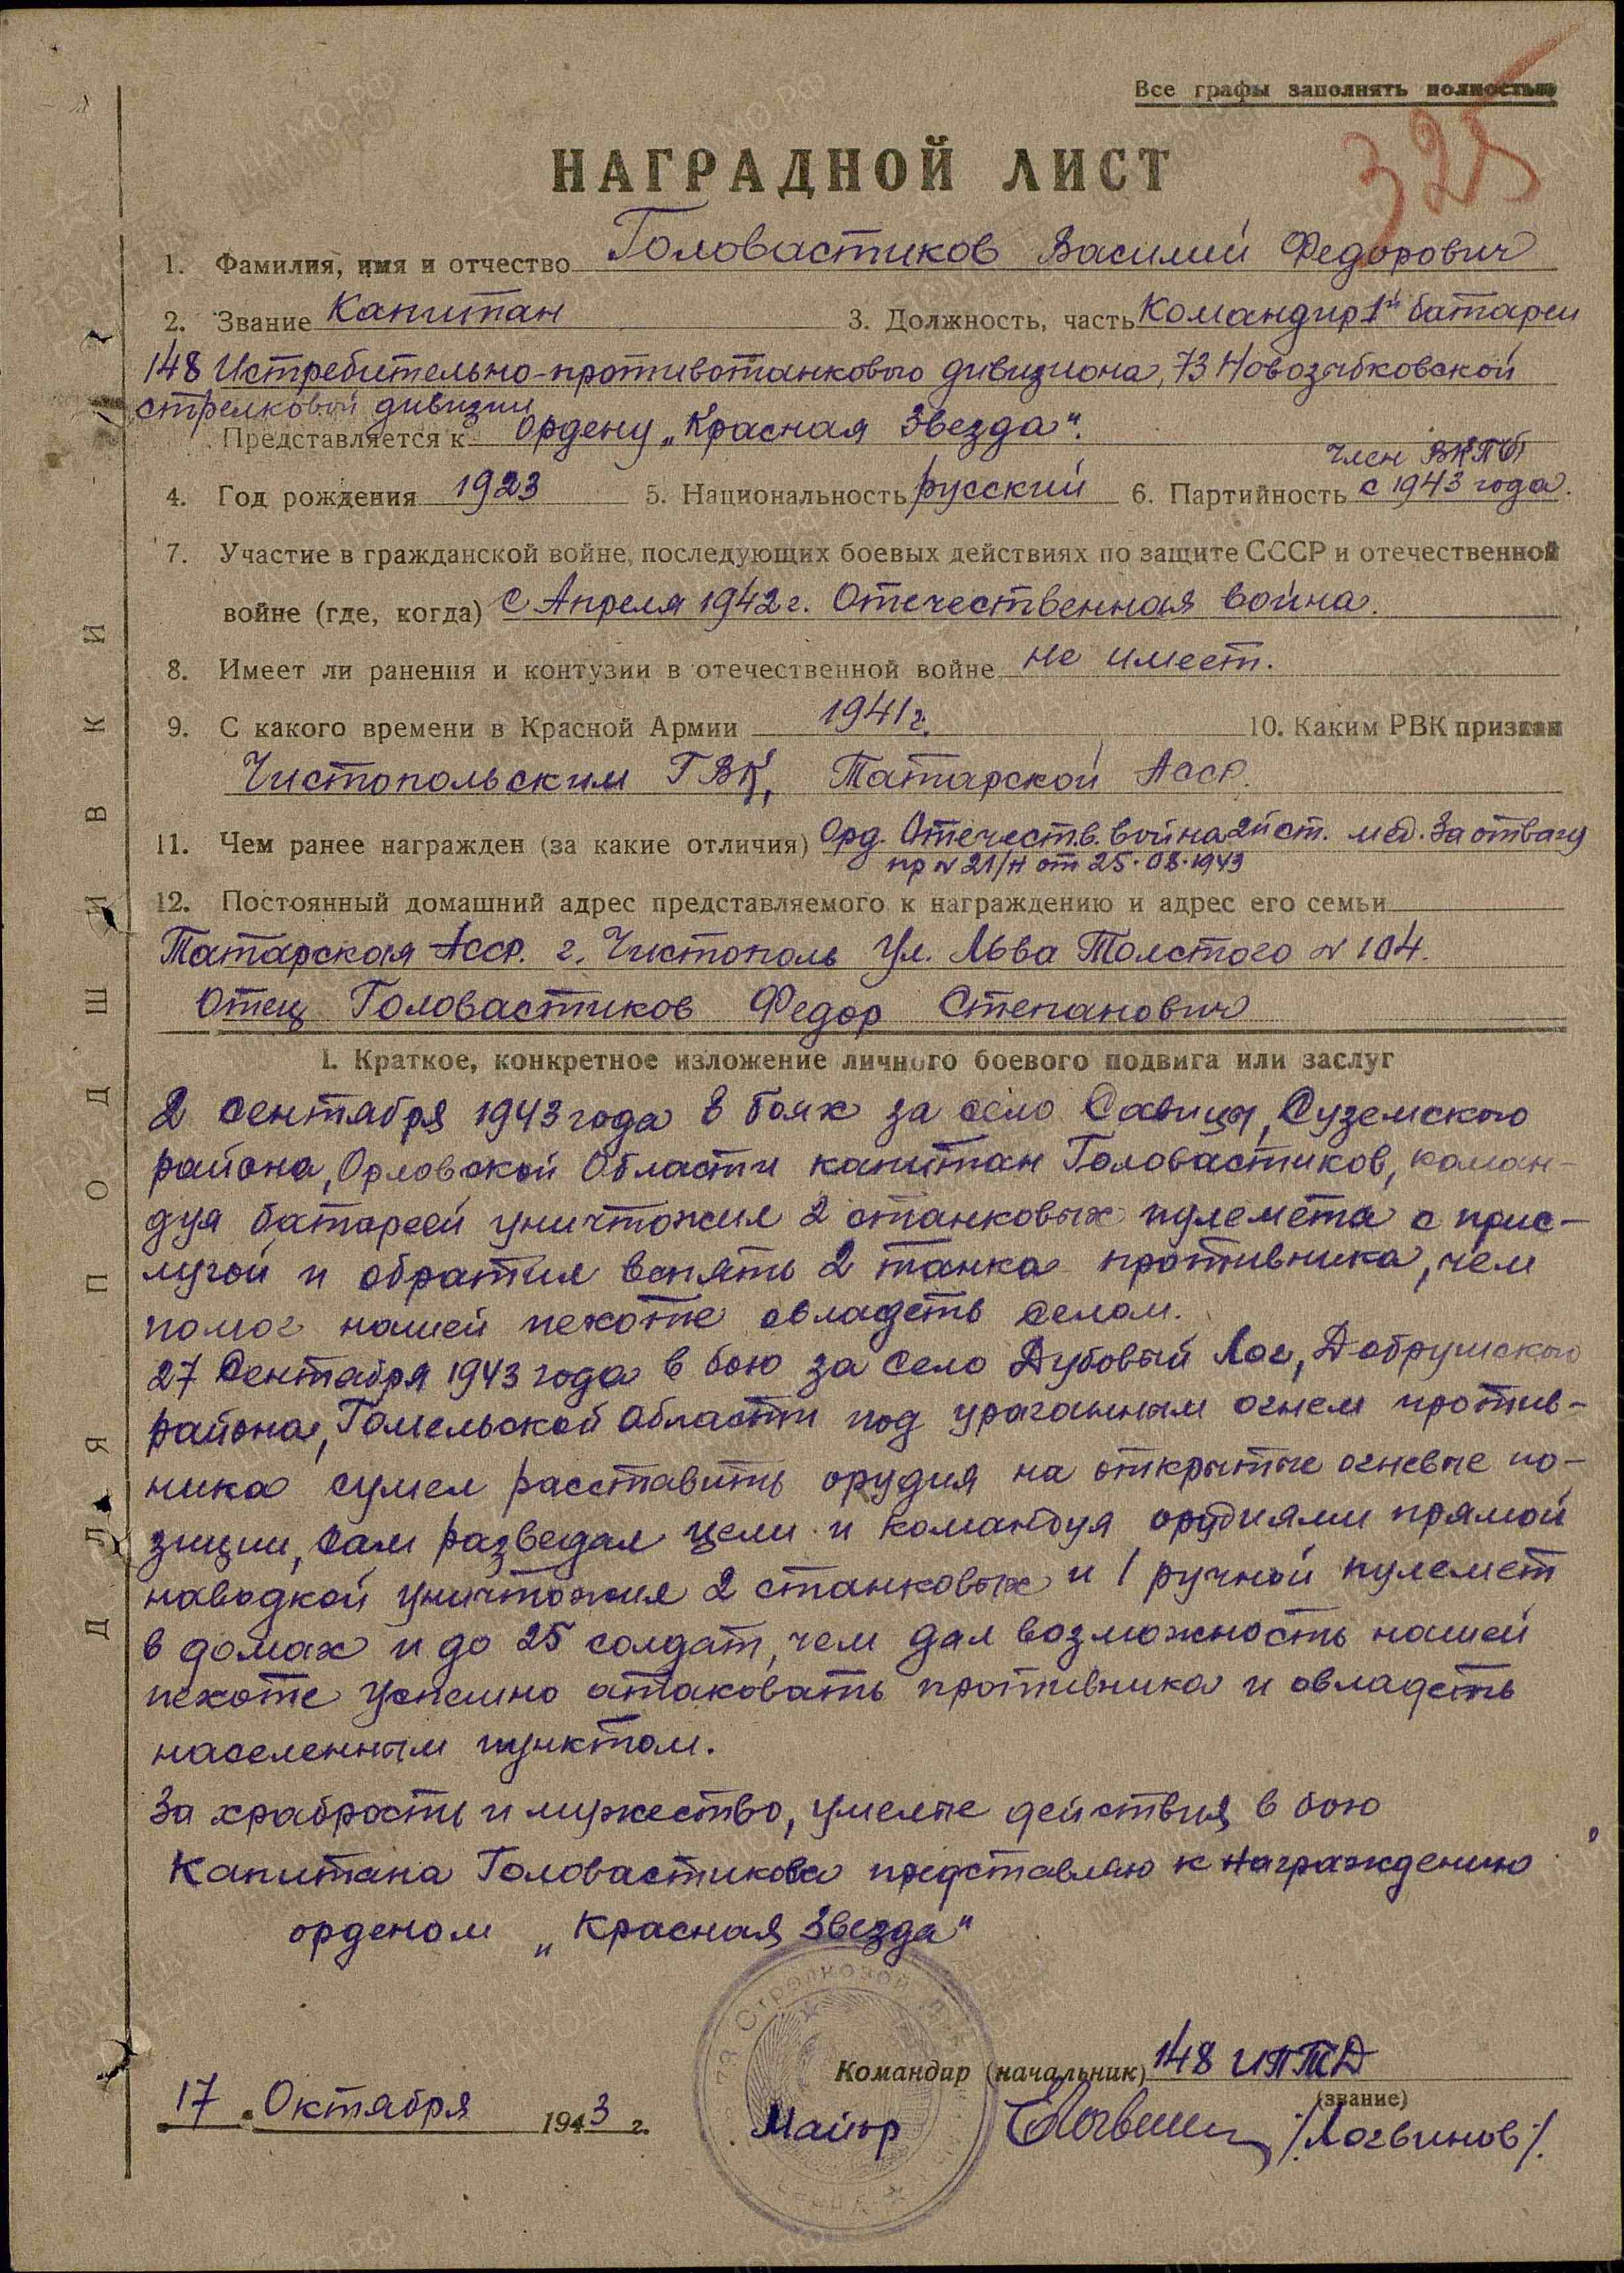 Все графы заполнять полностью
325
НАГРАДНОЙ ЛИСТ
1. Фамилия, имя и отчество Головастиков Василий Федорович
2. Звание Капитан 3. Должность, часть Командир 1й батареи
148 Истребительно-противотанкового дивизиона, 73 Новозыбковской
стрелковой дивизии
Представляется к Ордену „Красная Звезда".
4. Год рождения 1923 5. Национальность русский 6. Партийность Член ВКПб
с 1943 года.
7. Участие в гражданской войне, последующих боевых действиях по защите СССР и отечественной
войне (где, когда) С Апреля 1942 г. Отечественная война.
8. Имеет ли ранения и контузии в отечественной войне не имеет.
9. С какого времени в Красной Армии 1941 г. 10. Каким РВК призван
Чистопольским ГВК, Татарской АССР.
11. Чем ранее награжден (за какие отличия) Орд. Отечеств. война 2й ст. мед. За отвагу
пр № 21/н от 25.08.1943
12. Постоянный домашний адрес представляемого к награждению и адрес его семьи
Татарская АССР. г. Чистополь Ул. Льва Толстого № 104.
Отец Головастиков Федор Степанович
I. Краткое, конкретное изложение личного боевого подвига или заслуг
2 Сентября 1943 года в боях за село Савицы, Суземского
района, Орловской Области капитан Головастиков, коман-
дуя батареей уничтожил 2 станковых пулемета с прис-
лугой и обратил вспять 2 танка противника, чем
помог нашей пехоте овладеть селом.
27 Сентября 1943 года в бою за село Дубовый Лог, Добрушского
района, Гомельской Области под ураганным огнем против-
ника сумел расставить орудия на открытые огневые по-
зиции, сам разведал цели и командуя орудиями прямой
наводкой уничтожил 2 станковых и 1 ручной пулемет
в домах и до 25 солдат, чем дал возможность нашей
пехоте успешно атаковать противника и овладеть
населенным пунктом.
За храбрость и мужество, умелые действия в бою
Капитана Головастикова представляю к награждению
орденом „Красная Звезда"
Командир (начальник) 148 ИПТД
(звание)
17 Октября 1943 г.
Майор /Логвинов/.
ДЛЯ ПОДШИВКИ